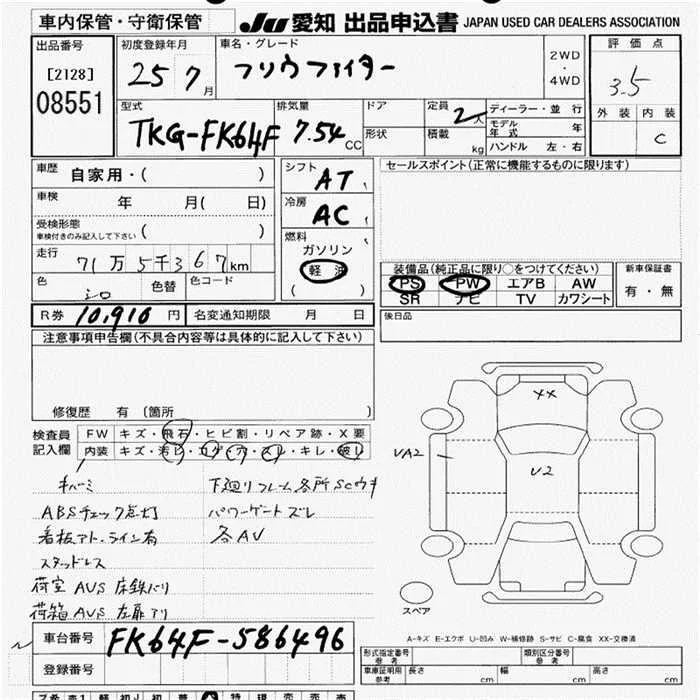 車内保管・守衛保管 JU 愛知 出品申込書 JAPAN USED CAR DEALERS ASSOCIATION
出品番号 初度登録年月 車名・グレード 評価点
[2128] 25 7月 フソウファイター 2WD・4WD 3.5
08551 外装 内装
型式 排気量 ドア 定員 2人 ディーラー・並行
TKG-FK64F 7.54cc 形状 積載 kg モデル年式 年 C
ハンドル 左・右
車歴 自家用・( ) シフト AT セールスポイント(正常に機能するものに限ります)
車検 年 月( 日) 冷房 AC
受検形態 ( )
車検付きのみ記入して下さい
燃料 ガソリン
走行 71万5千367km 軽油 装備品(純正品に限り○をつけてください) 新車保証書
色 シロ 色替 色コード ( ) PS PW エアB AW 有・無
SR ナビ TV カワシート
R券 10,910円 名変通知期限 月 日 後日品
注意事項申告欄(不具合内容等は具体的に記入して下さい)
修復歴 有 (箇所 )
検査員 FW キズ・飛石・ヒビ割・リペア跡・X要
記入欄 内装 キズ・汚レ・コゲ・穴・スレ・キレ・破レ
XX
VA2
U2
キバミ 下廻りフレーム各所SCウキ
ABSチェック点灯 パワーゲートズレ
看板アト、ライン有 各AV
スタッドレス
荷室AUS 床鉄バリ
荷箱AUS 左扉アリ
スペア
A-キズ E-エクボ U-凹み W-補修跡 S-サビ C-腐食 XX-交換済
車台番号 FK64F-586496
登録番号
型式指定番号 参考 類別区分番号 参考
車庫証明用 参考 長さ cm 幅 cm 高さ cm